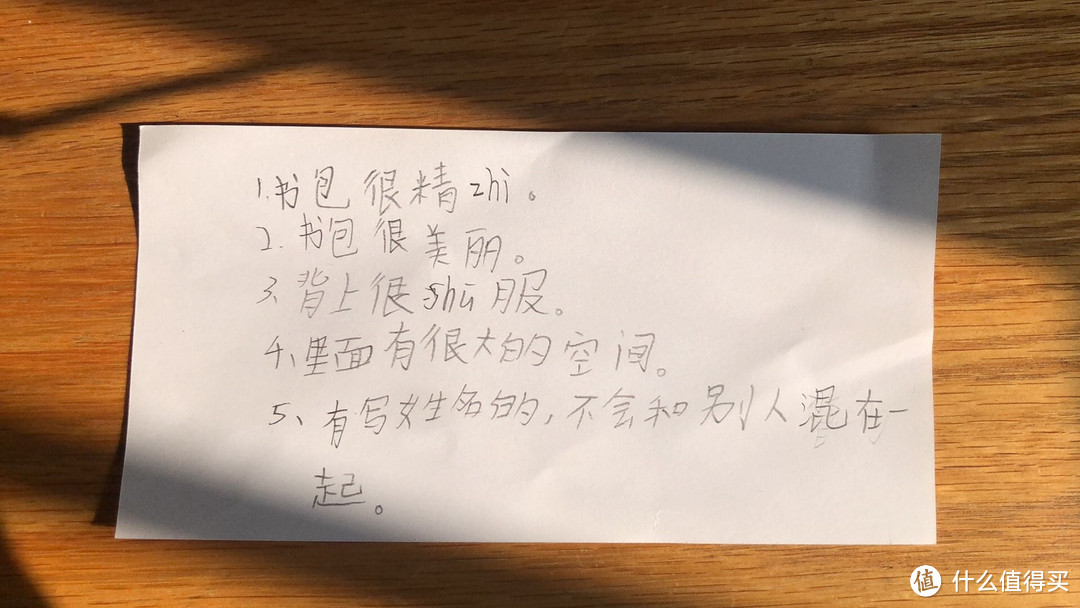 1.书包很精zhi。
2.书包很美丽。
3、背上很shū服。
4、里面有很大的空间。
5、有写姓名的,不会和别人混在一
起。
值 什么值得买